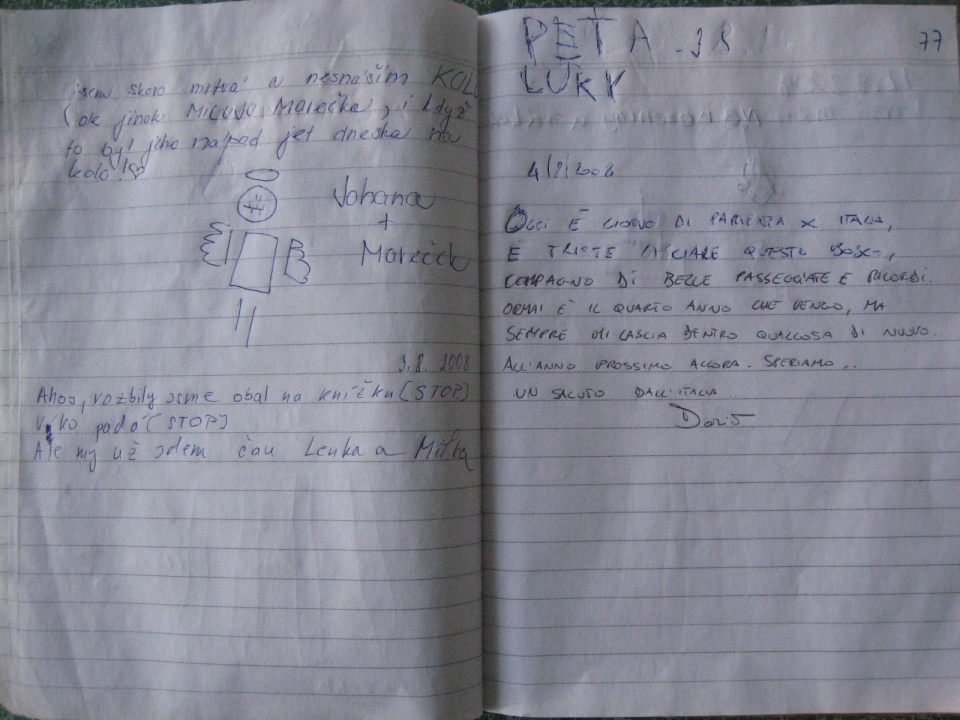 jsem skoro mrtvá a nesnáším KOLO
(ale jinak MILUJU Marečka, i když
to byl jeho nápad jet dneska na
kolo!
Johana
+
Mareček
3.8. 2008
Ahoj, rozbily jsme obal na knížku [STOP]
Víko padá [STOP]
Ale my už jdem čau Lenka a Miťka
PEŤA 3.8.
LUKY
77
4/8/2008
OGGI È GIORNO DI PARTENZA X ITALIA,
È TRISTE LASCIARE QUESTO BOSCO,
COMPAGNO DI BELLE PASSEGGIATE E RICORDI.
ORMAI È IL QUARTO ANNO CHE VENGO, MA
SEMPRE MI LASCIA DENTRO QUALCOSA DI NUOVO.
ALL'ANNO PROSSIMO ALLORA. SPERIAMO...
UN SALUTO DALL'ITALIA
Doris